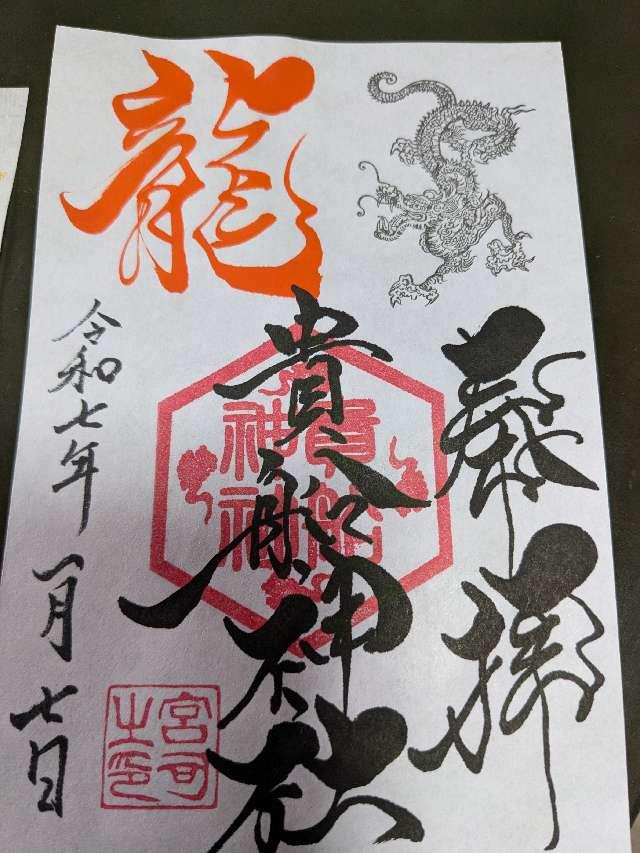 奉拝
龍
貴船神社
貴船
神社
令和七年一月七日
宮司
之印